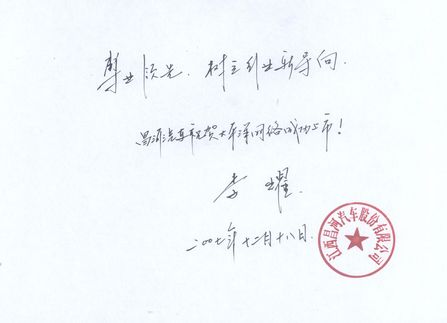 树立引业新导向.
昌河汽车祝贺太平洋网络成功上市!
李耀.
二〇〇七年十二月十八日.
江西昌河汽车股份有限公司